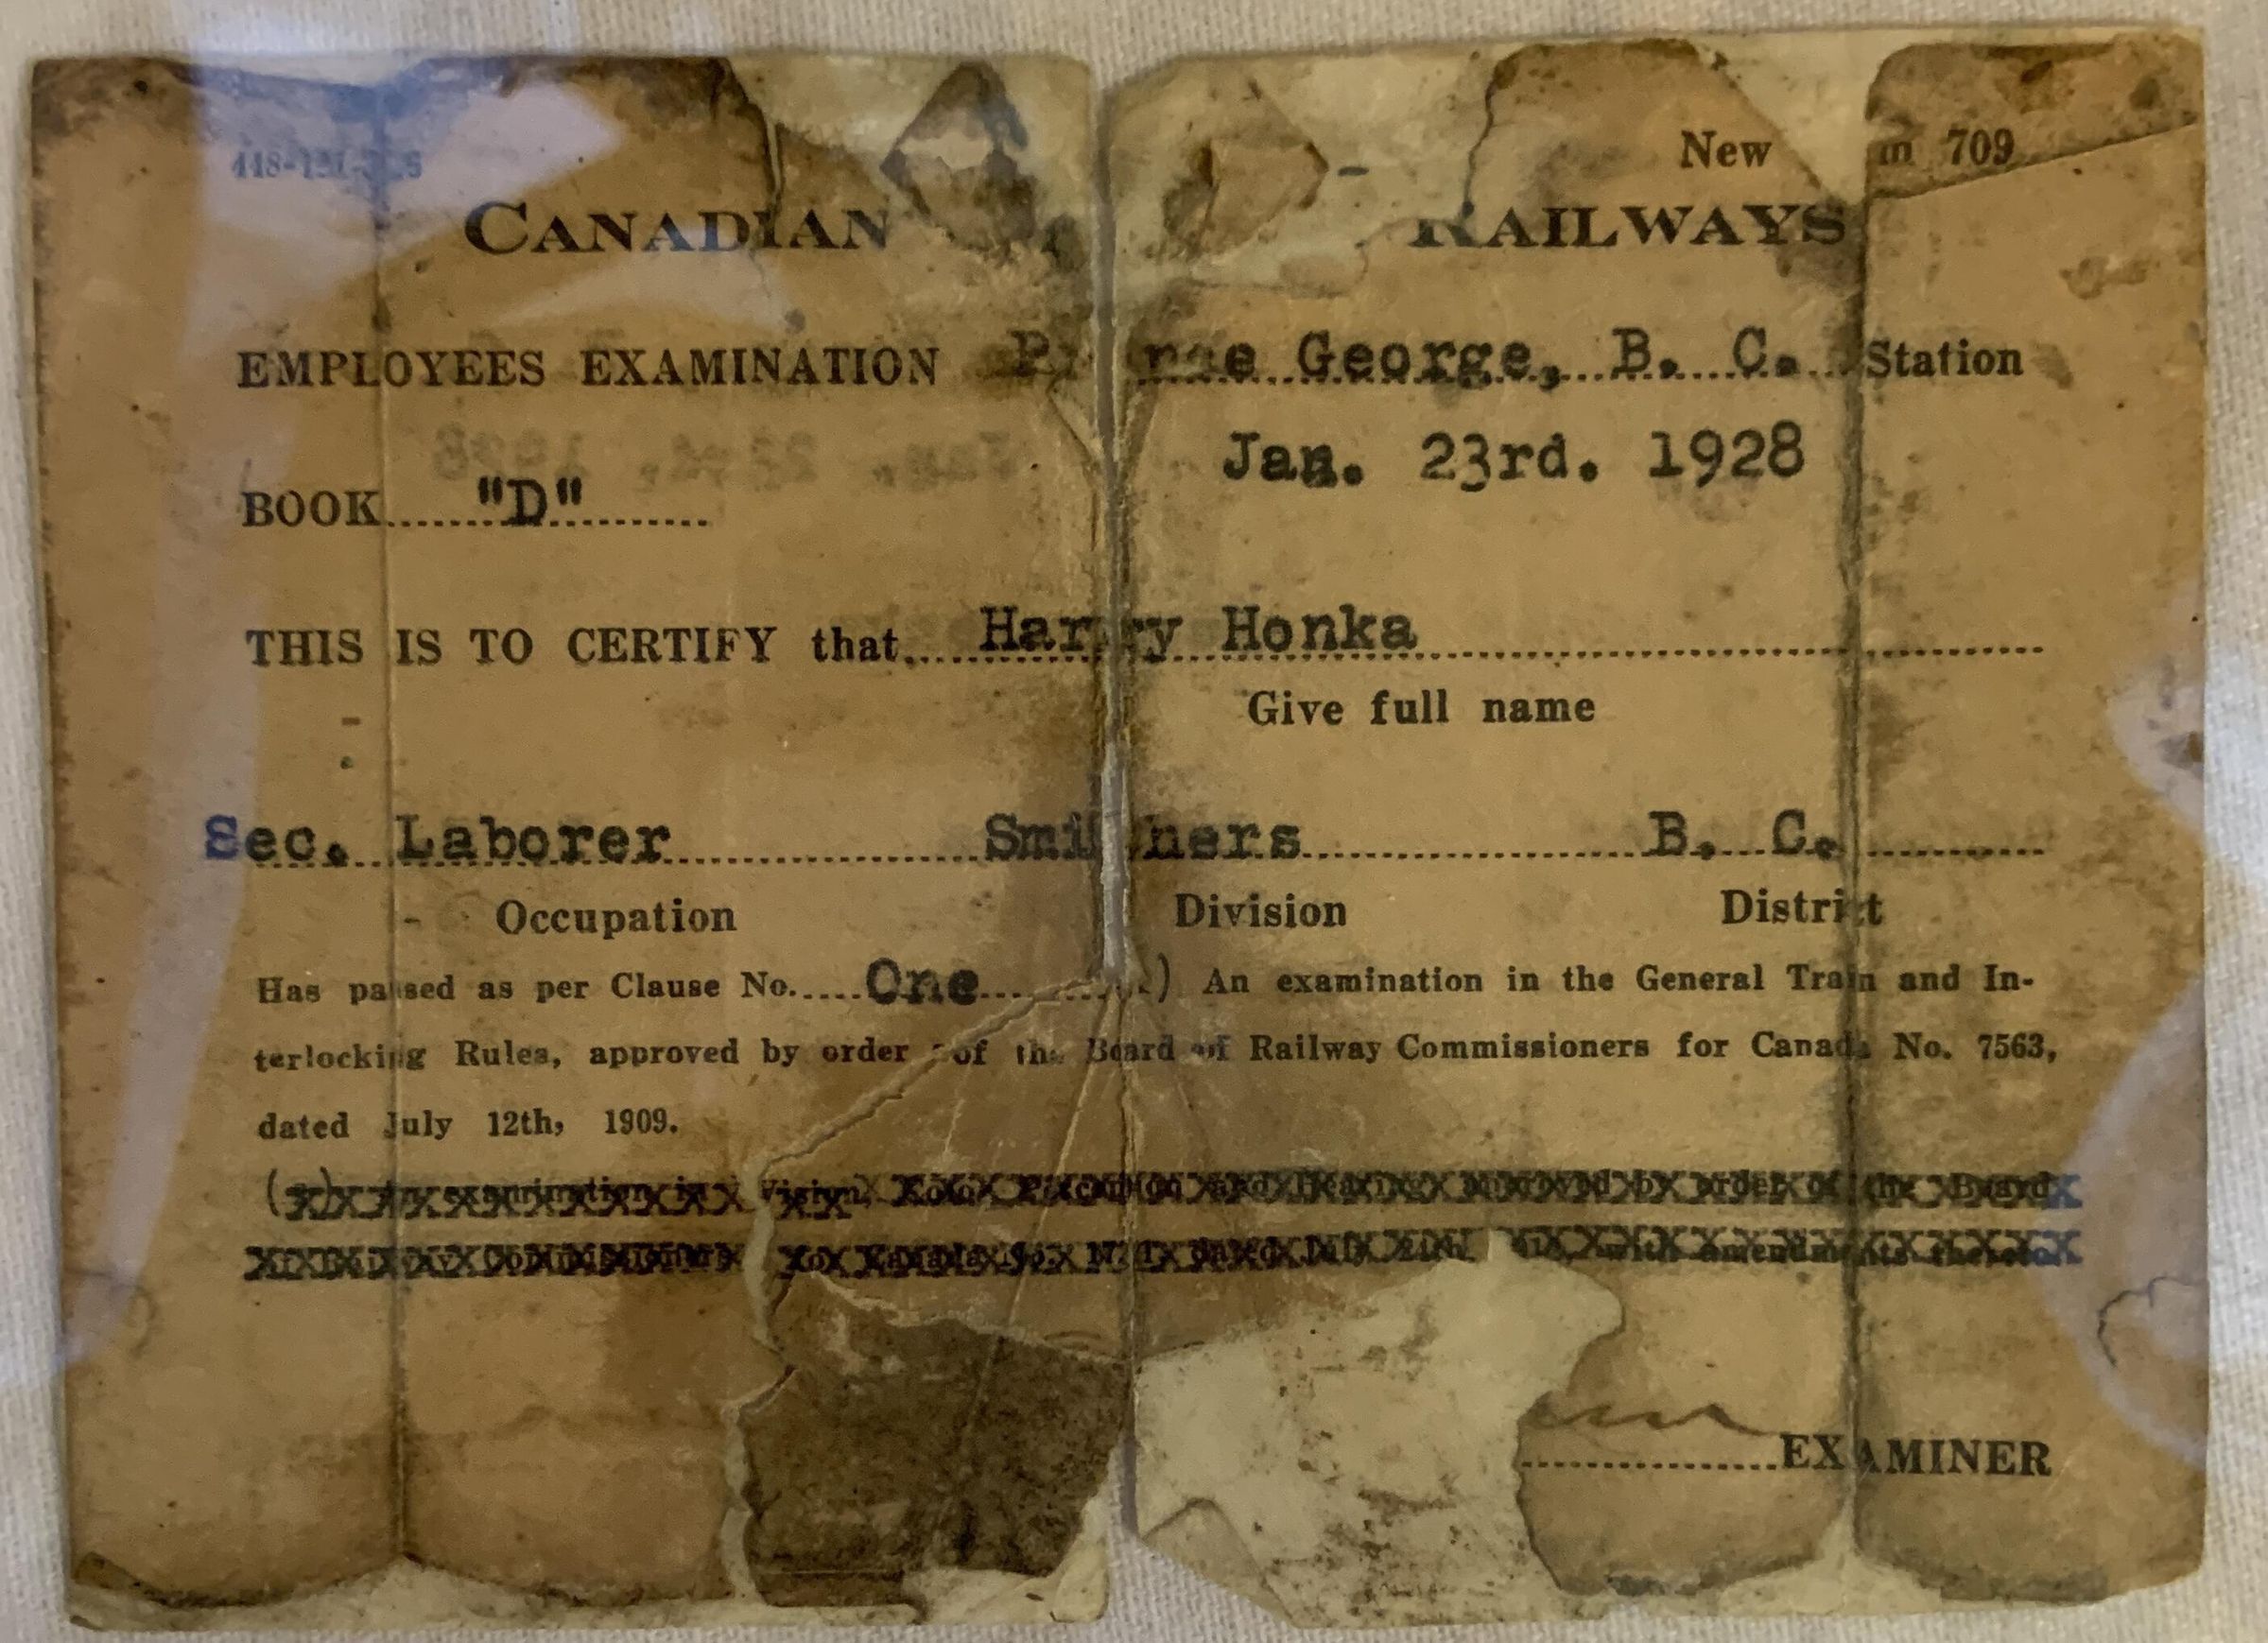 New 709
CANADIAN RAILWAYS
EMPLOYEES EXAMINATION George, B. C. Station
Jan. 23rd. 1928
BOOK "D"
THIS IS TO CERTIFY that Harry Honka
Give full name
Sec. Laborer Smithers B. C.
Occupation Division District
Has passed as per Clause No. One ) An examination in the General Train and In-
terlocking Rules, approved by order of the Board of Railway Commissioners for Canada No. 7563,
dated July 12th, 1909.
examination in Vision
with amendments thereto
EXAMINER